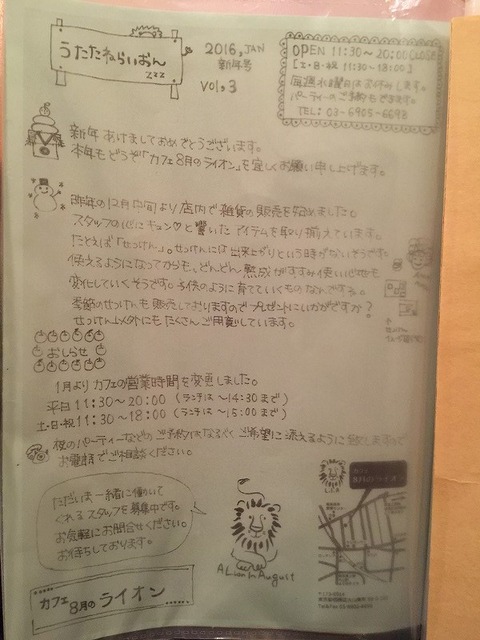 うたたねらいおん
zzz
2016, JAN
新年号
VOL, 3
OPEN 11:30~20:00 CLOSE
[土・日・祝 11:30~18:00]
毎週水曜日はお休みします。
パーティーのご予約もできます。
TEL: 03-6905-6693
新年あけましておめでとうございます。
本年もどうぞ「カフェ8月のライオン」を宜しくお願い申し上げます。
昨年の12月中旬より店内で雑貨の販売を始めました。
スタッフの心にキュン♡と響いたアイテムを取り揃えています。
たとえば「せっけん」。せっけんには出来上がりという時がないそうです。
使えるようになってからも、どんどん熟成がすすみ使い心地も
変化していくそうです。子供のように育てていくものなんですネ。
季節のせっけんも販売しておりますのでプレゼントにいかがですか?
せっけん以外にもたくさんご用意しています。
おしらせ
1月よりカフェの営業時間を変更しました。
平日 11:30~20:00 (ランチは~14:30まで)
土・日・祝 11:30~18:00 (ランチは~15:00まで)
祝のパーティーなどのご予約はなるべくご希望に添えるように致しますので
お電話でご相談ください。
ただいま一緒に働いて
くれるスタッフを募集中です。
お気軽にお問合せください。
お待ちしております。
A Lion In August
カフェ 8月のライオン
カフェ
8月のライオン